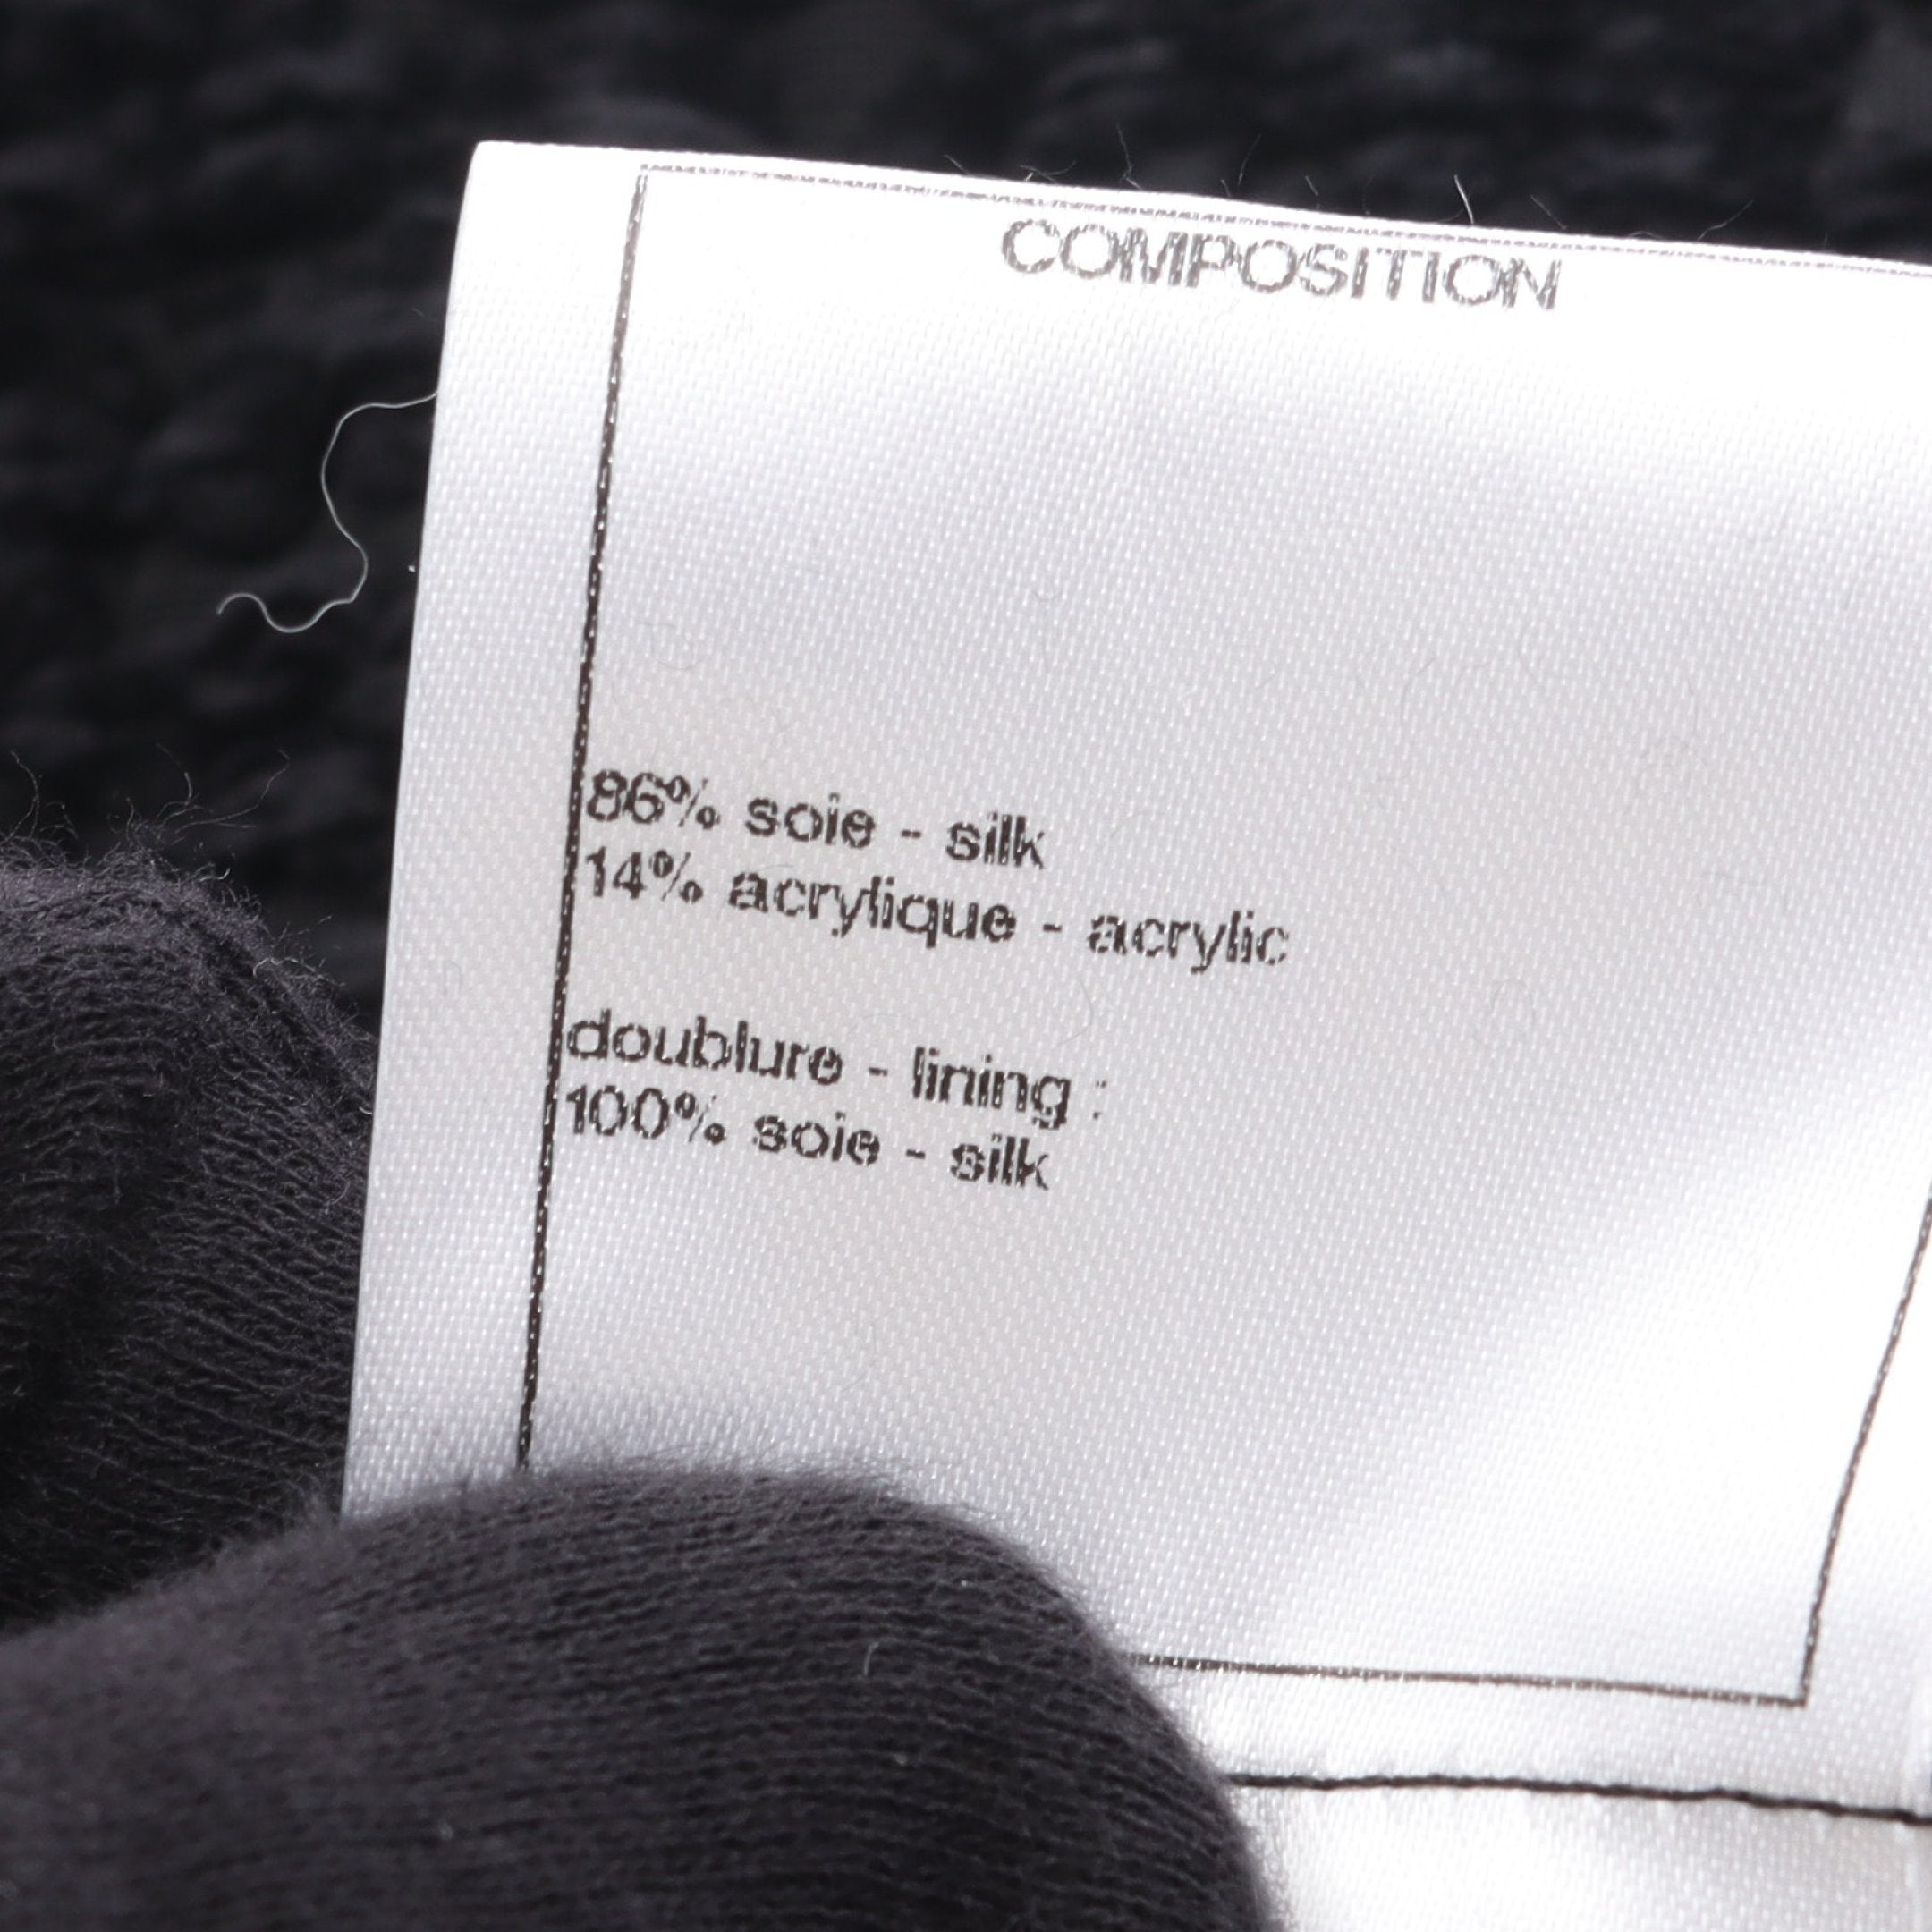 COMPOSITION
86% soie - silk
14% acrylique - acrylic
doublure - lining :
100% soie - silk